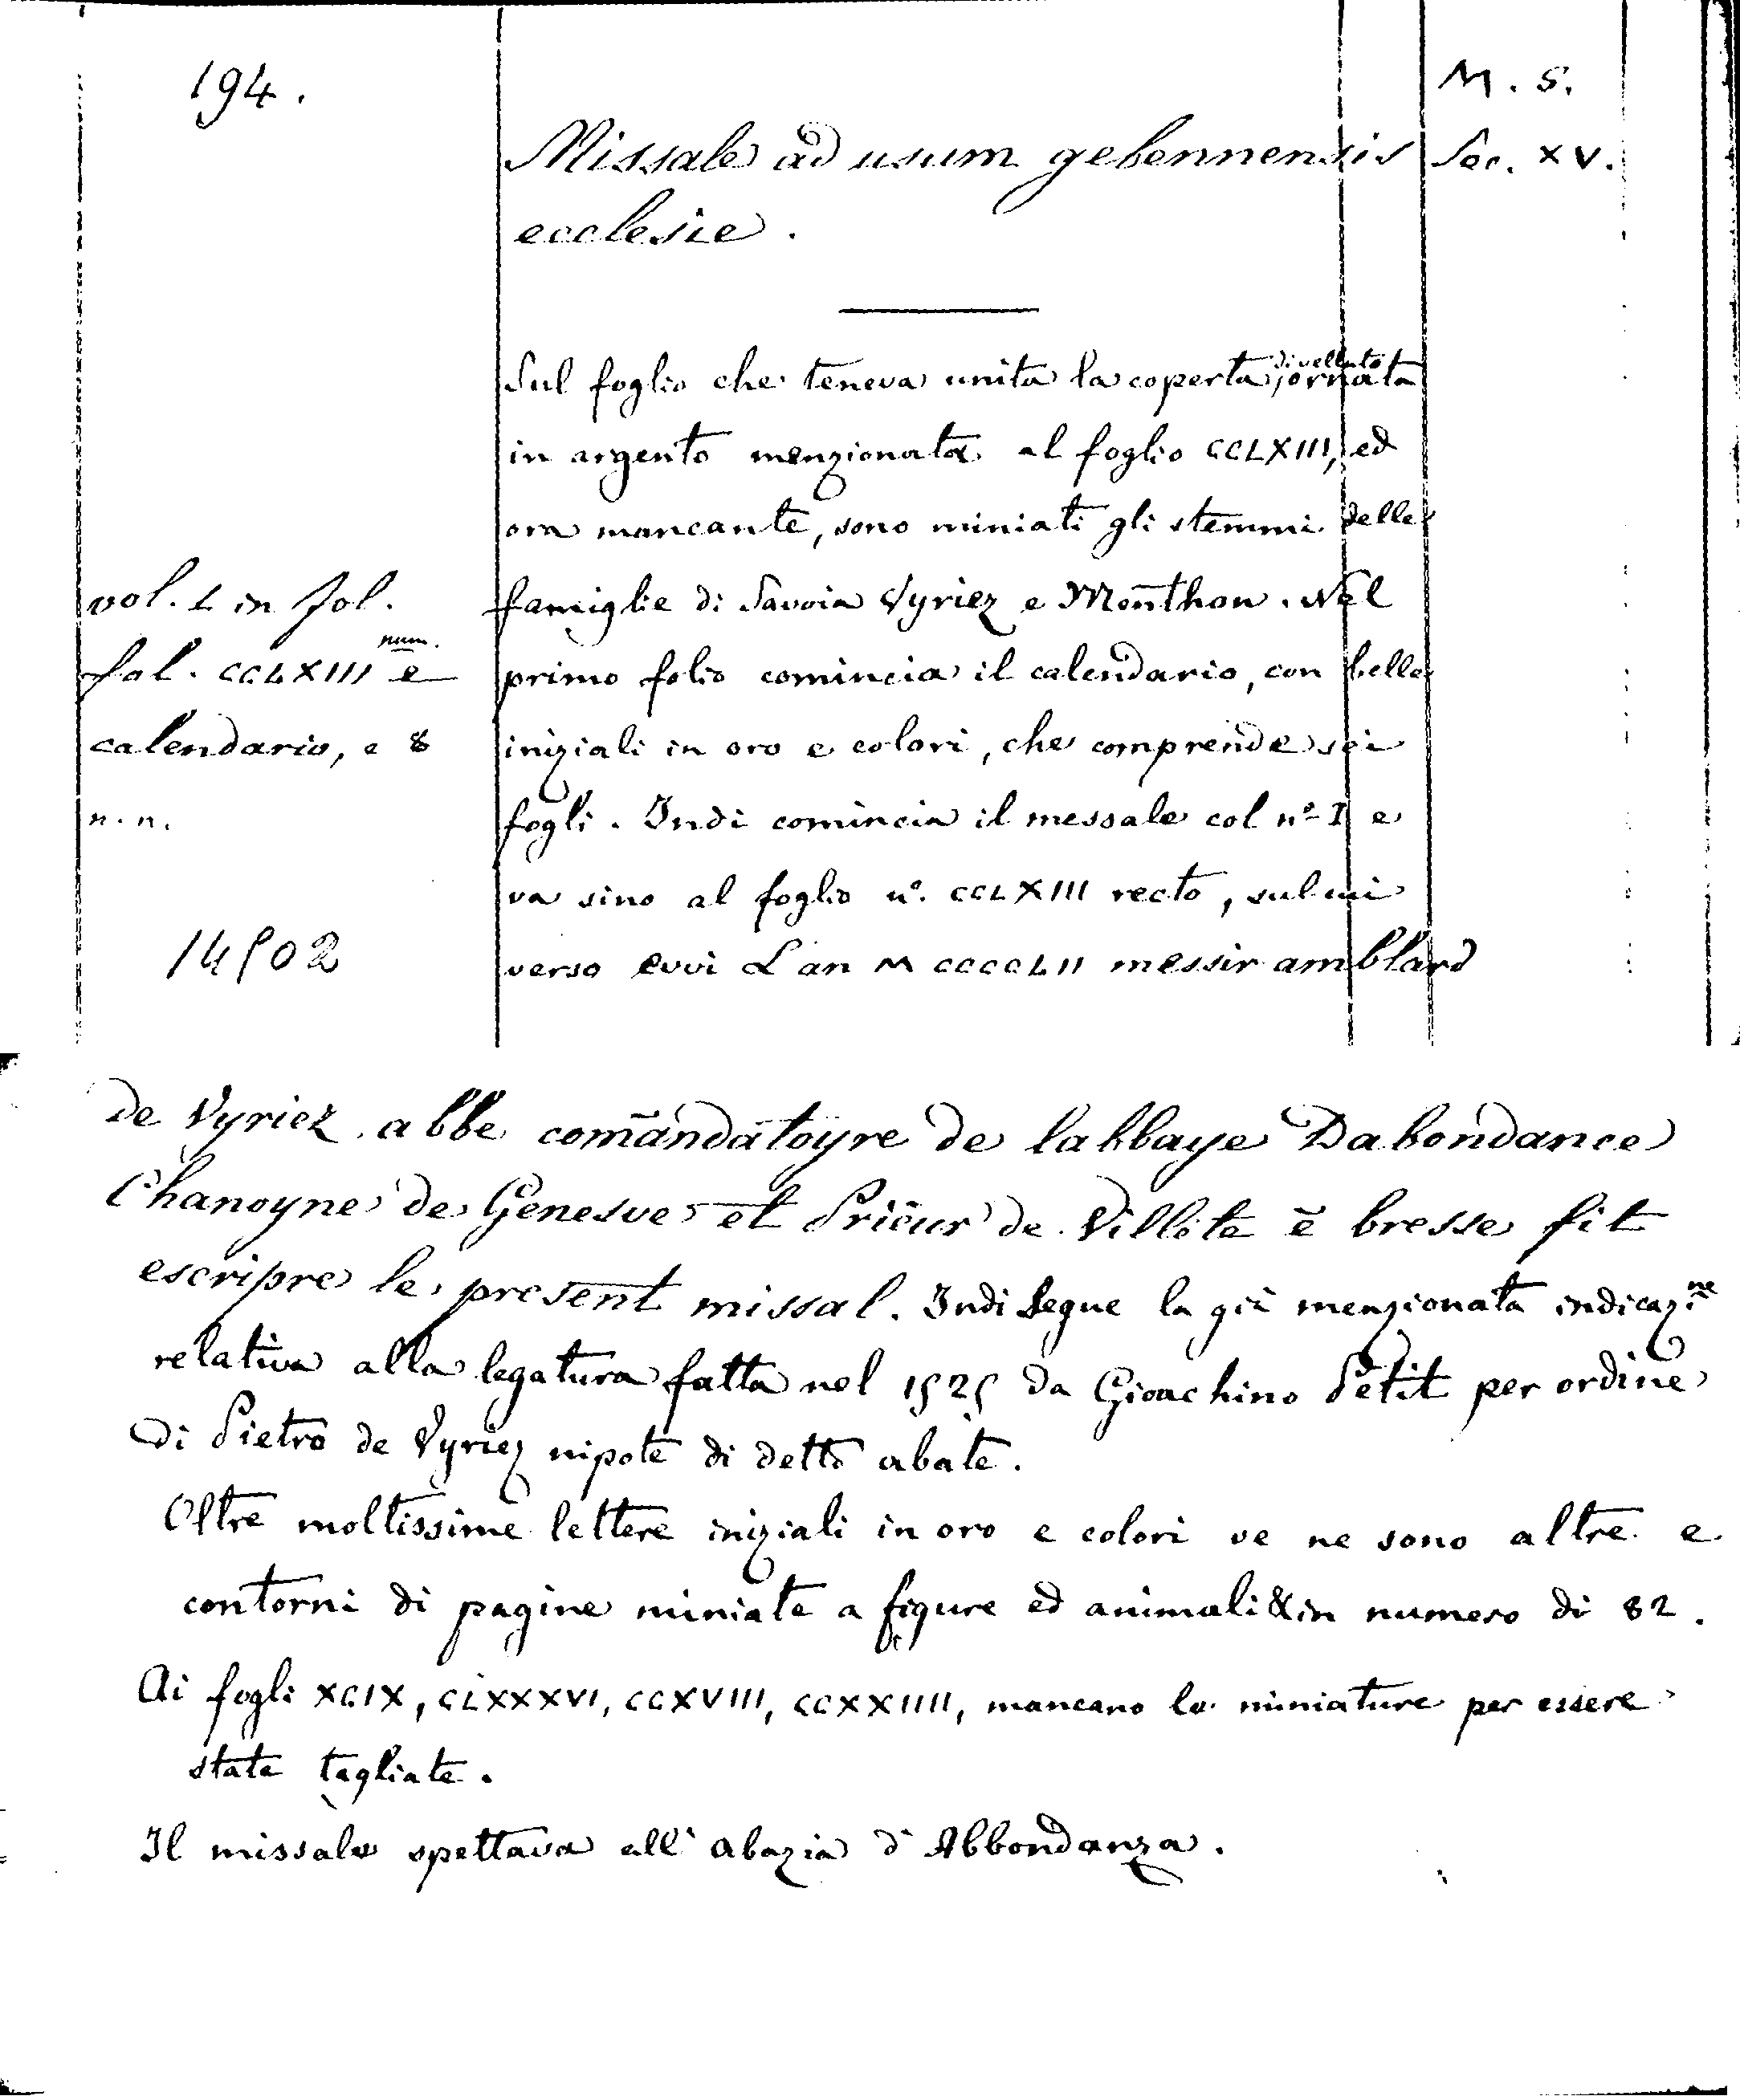 194.
M. S.
Missale ad usum gebennensis
Sec. XV.
ecclesie.
Sul foglio che teneva unita la coperta di velluto, ornata
in argento menzionata al foglio CCLXIII, ed
ora mancante, sono miniati gli stemmi delle
famiglie di Savoia Vyriez e Menthon. Nel
primo folio comincia il calendario, con belle
iniziali in oro e colori, che comprende sei
fogli. Indi comincia il messale col nº I e
va sino al foglio nº. CCLXIII recto, sul cui
verso evvi L'an M CCCCLII messir amblard
vol. 1 in fol.
fol. CCLXIII num. e
calendario, e 8
n. n.
14502
de Vyriez abbe comãndatoyre de labbaye Dabondance
Chanoyne de Genesve et Prieur de Villete ē bresse fit
escripre le present missal. Indi segue la già menzionata indicazine
relativa alla legatura fatta nel 1525 da Gioachino Petit per ordine
di Pietro de Vyriez nipote di detto abate.
Oltre moltissime lettere iniziali in oro e colori ve ne sono altre e
contorni di pagine miniate a figure ed animali & in numero di 82.
Ai fogli XCIX, CLXXXVI, CCXVIII, CCXXIIII, mancano le miniature per essere
state tagliate.
Il missale spettava all'abazia d'Abbondanza.